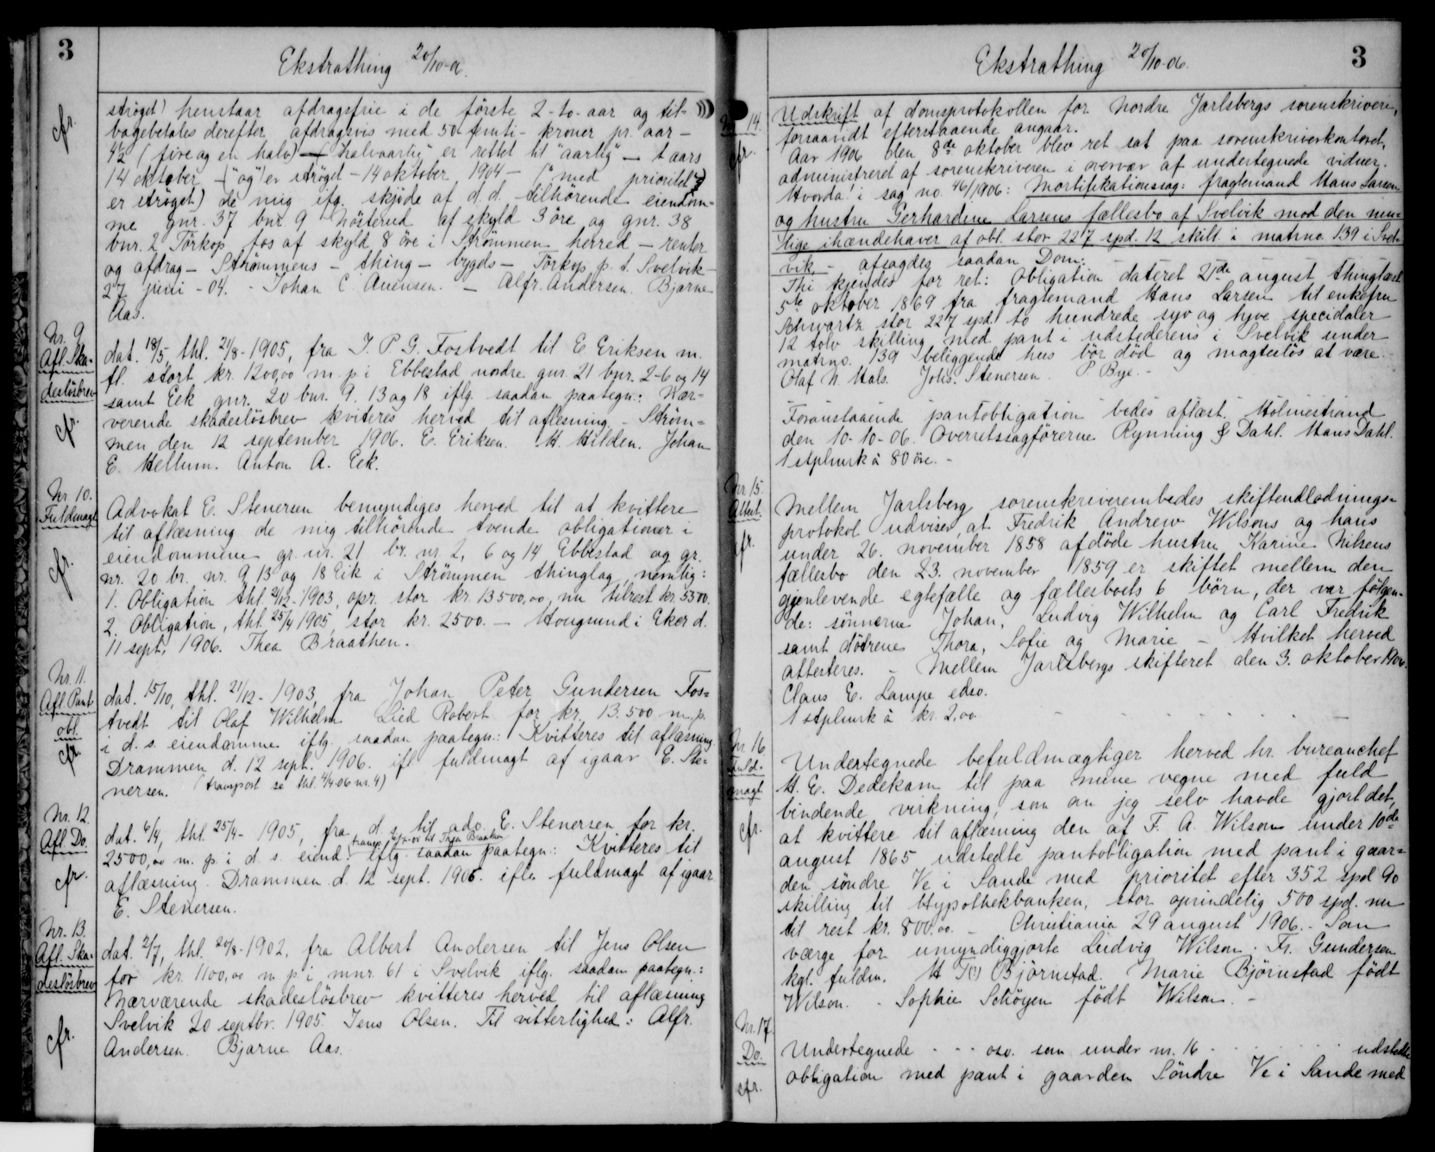 3
Ekstrathing 20/10-06.
cfr.
strøget) henstaar afdragsfrie i de første 2-to-aar og til-
bagebetales derefter afdragsvis med 50-femti-kroner pr. aar-
4½ (fire og en halv) - "halvaarlig" er rettet til "aarlig" - taars
14 oktober - ("og" er strøget - 14 oktober 1904 - ("med prioritet"
er strøget) de mig ifg. skjøde af d. d. tilhørende eiendom-
me gnr. 37 bnr. 9 Nøsterud af skyld 3 øre og gnr. 38
bnr. 2 Tørkop, fos af skyld 8 øre i Strømmen herred - renter
og afdrag - Strømmens - thing - bygds - Tørkop p. t. Svelvik
27 juni - 04. - Johan C. Auensen. - Alfr. Andersen. Bjarne
Aas.
Nr. 9
Afl. Ska-
desløsbrev
cfr.
dat. 18/5, thl. 21/8-1905, fra J. P. G. Fostvedt til E. Eriksen m.
fl. stort kr. 1200,00 m. p. i Ebbestad nordre gnr. 21 bnr. 2-6 og 14
samt Eek gnr. 20 bnr. 9. 13 og 18 iflg. saadan paategn: Nær-
værende skadesløsbrev kviteres herved til aflesning. - Strøm-
men den 12 september 1906. E. Eriksen. H. Hilden. Johan
E. Mellum. Anton A. Eek.
Nr. 10.
Fuldmagt
cfr.
Advokat E. Stenersen bemyndiges herved til at kvittere
til aflæsning de mig tilhørende tvende obligationer i
eiendommene gr. nr. 21 br. nr. 2, 6 og 14 Ebbestad og gr.
nr. 20 br. nr. 9, 13 og 18 Eik i Strømmen thinglag, nemlig:
1. Obligation thl. 21/12-1903, opr. stor kr. 13500,00, nu tilrest kr. 5500.
2. Obligation, thl. 25/4 1905 stor kr. 2500. - Hougsund i Eker d.
11 sept. 1906. Thea Braathen.
Nr. 11.
Afl. Pant
obl.
cfr.
dat. 15/10, thl. 21/12-1903, fra Johan Peter Gundersen Fos-
tvedt til Olaf Wilhelm Lied Robert for kr. 13.500 m. p.
i d. s. eiendomme iflg. saadan paategn: Kvitteres til aflæsning
Drammen d. 12 sept. 1906. ifl. fuldmagt af igaar E. Ste-
nersen. (transport se thl. 4/4 06 nr. 4)
Nr. 12.
Afl. Do.
cfr.
dat. 6/4, thl. 25/4-1905, fra d. s. til adv. E. Stenersen for kr.
2500,00 m. p. i d. s. eiend. iflg. saadan paategn: Kvitteres til
aflæsning. Drammen d. 12 sept. 1906. iflg. fuldmagt af igaar
E. Stenersen.
Nr. 13.
Afl. Ska-
desløsbrev
cfr.
dat. 2/7, thl. 20/8-1902, fra Albert Andersen til Jens Olsen
for kr. 1100,00 m. p. i mnr. 61 i Svelvik iflg. saadan paategn:
Nærværende skadesløsbrev kvitteres herved til aflæsning
Svelvik 20 septbr. 1905 Jens Olsen. Til vitterlighed: Alfr.
Andersen. Bjarne Aas.
Ekstrathing 20/10-06.
3
Nr. 14.
cfr.
Udskrift af domsprotokollen for Nordre Jarlsbergs sorenskriveri,
forsaavidt efterstaaende angaar.
Aar 1906 den 8de oktober blev ret sat paa sorenskriverkontoret,
administreret af sorenskriveren i overvær af undertegnede vidner.
Hvorda i sag no. 46/1906: Mortifikationssag: fragtemand Hans Larsen
og hustru Gerhardine Larsens fællesbo af Svelvik mod den mu-
lige ihændehaver af obl. stor 227 spd. 12 skill. i matrno. 139 i Svel-
vik - afsagdes saadan Dom:
Thi kjendes for ret: Obligation dateret 21de august thinglæst
5te oktober 1869 fra fragtemand Hans Larsen til enkefru
Schwartz stor 227 spd. to hundrede syv og tyve specidaler
12 tolv skilling med pant i udstederens i Svelvik under
matrno. 139 beliggende hus bør død og magtesløs at være.
Olaf N. Hals. Johs. Stenersen. P. Bye. -
Foranstaaende pantobligation bedes aflæst. Holmestrand
den 10-10-06. Overretssagførerne Rynning & Dahl. Hans Dahl.
1 stplmrk à 80 øre. -
Nr. 15
Attest.
cfr.
Mellem Jarlsberg sorenskriverembedes skifteudlodnings-
protokol udvises, at Fredrik Andrew Wilsons og hans
under 26. november 1858 afdøde hustru Karine Nilsens
fællesbo den 23. november 1859 er skiftet mellem den
gjenlevende egtefælle og fællesboets 6 børn, der var følgen-
de: sønnerne Johan, Ludvig Wilhelm og Carl Fredrik
samt døtrene Thora, Sofie og Marie - Hvilket herved
attesteres. - Mellem Jarlsbergs skifteret den 3. oktober 1906.
Claus E. Lampe edsv.
1 stplmrk à kr. 2,00
Nr. 16
Fuld-
magt
cfr.
Undertegnede befuldmægtiger herved hr. bureauchef
H. E. Dedekam til paa mine vegne med fuld
bindende virkning, som om jeg selv havde gjort det,
at kvittere til aflæsning den af F. A. Wilson under 10de
august 1865 udstedte pantobligation med pant i gaar-
den søndre Ve i Sande med prioritet efter 352 spd. 90
skilling til Hypothekbanken, stor oprindelig 500 spd. nu
til rest kr. 800,00. - Christiania 29 august 1906. - Som
værge for umyndiggjorte Ludvig Wilson. Fr. Gundersen
kgl. fuldm. H. Bjørnstad. Marie Bjørnstad født
Wilson. - Sophie Schøyen født Wilson. -
Nr. 17.
Do.
cfr.
Undertegnede - - - osv. som under nr. 16 - - - - udstedte
obligation med pant i gaarden Søndre Ve i Sande med